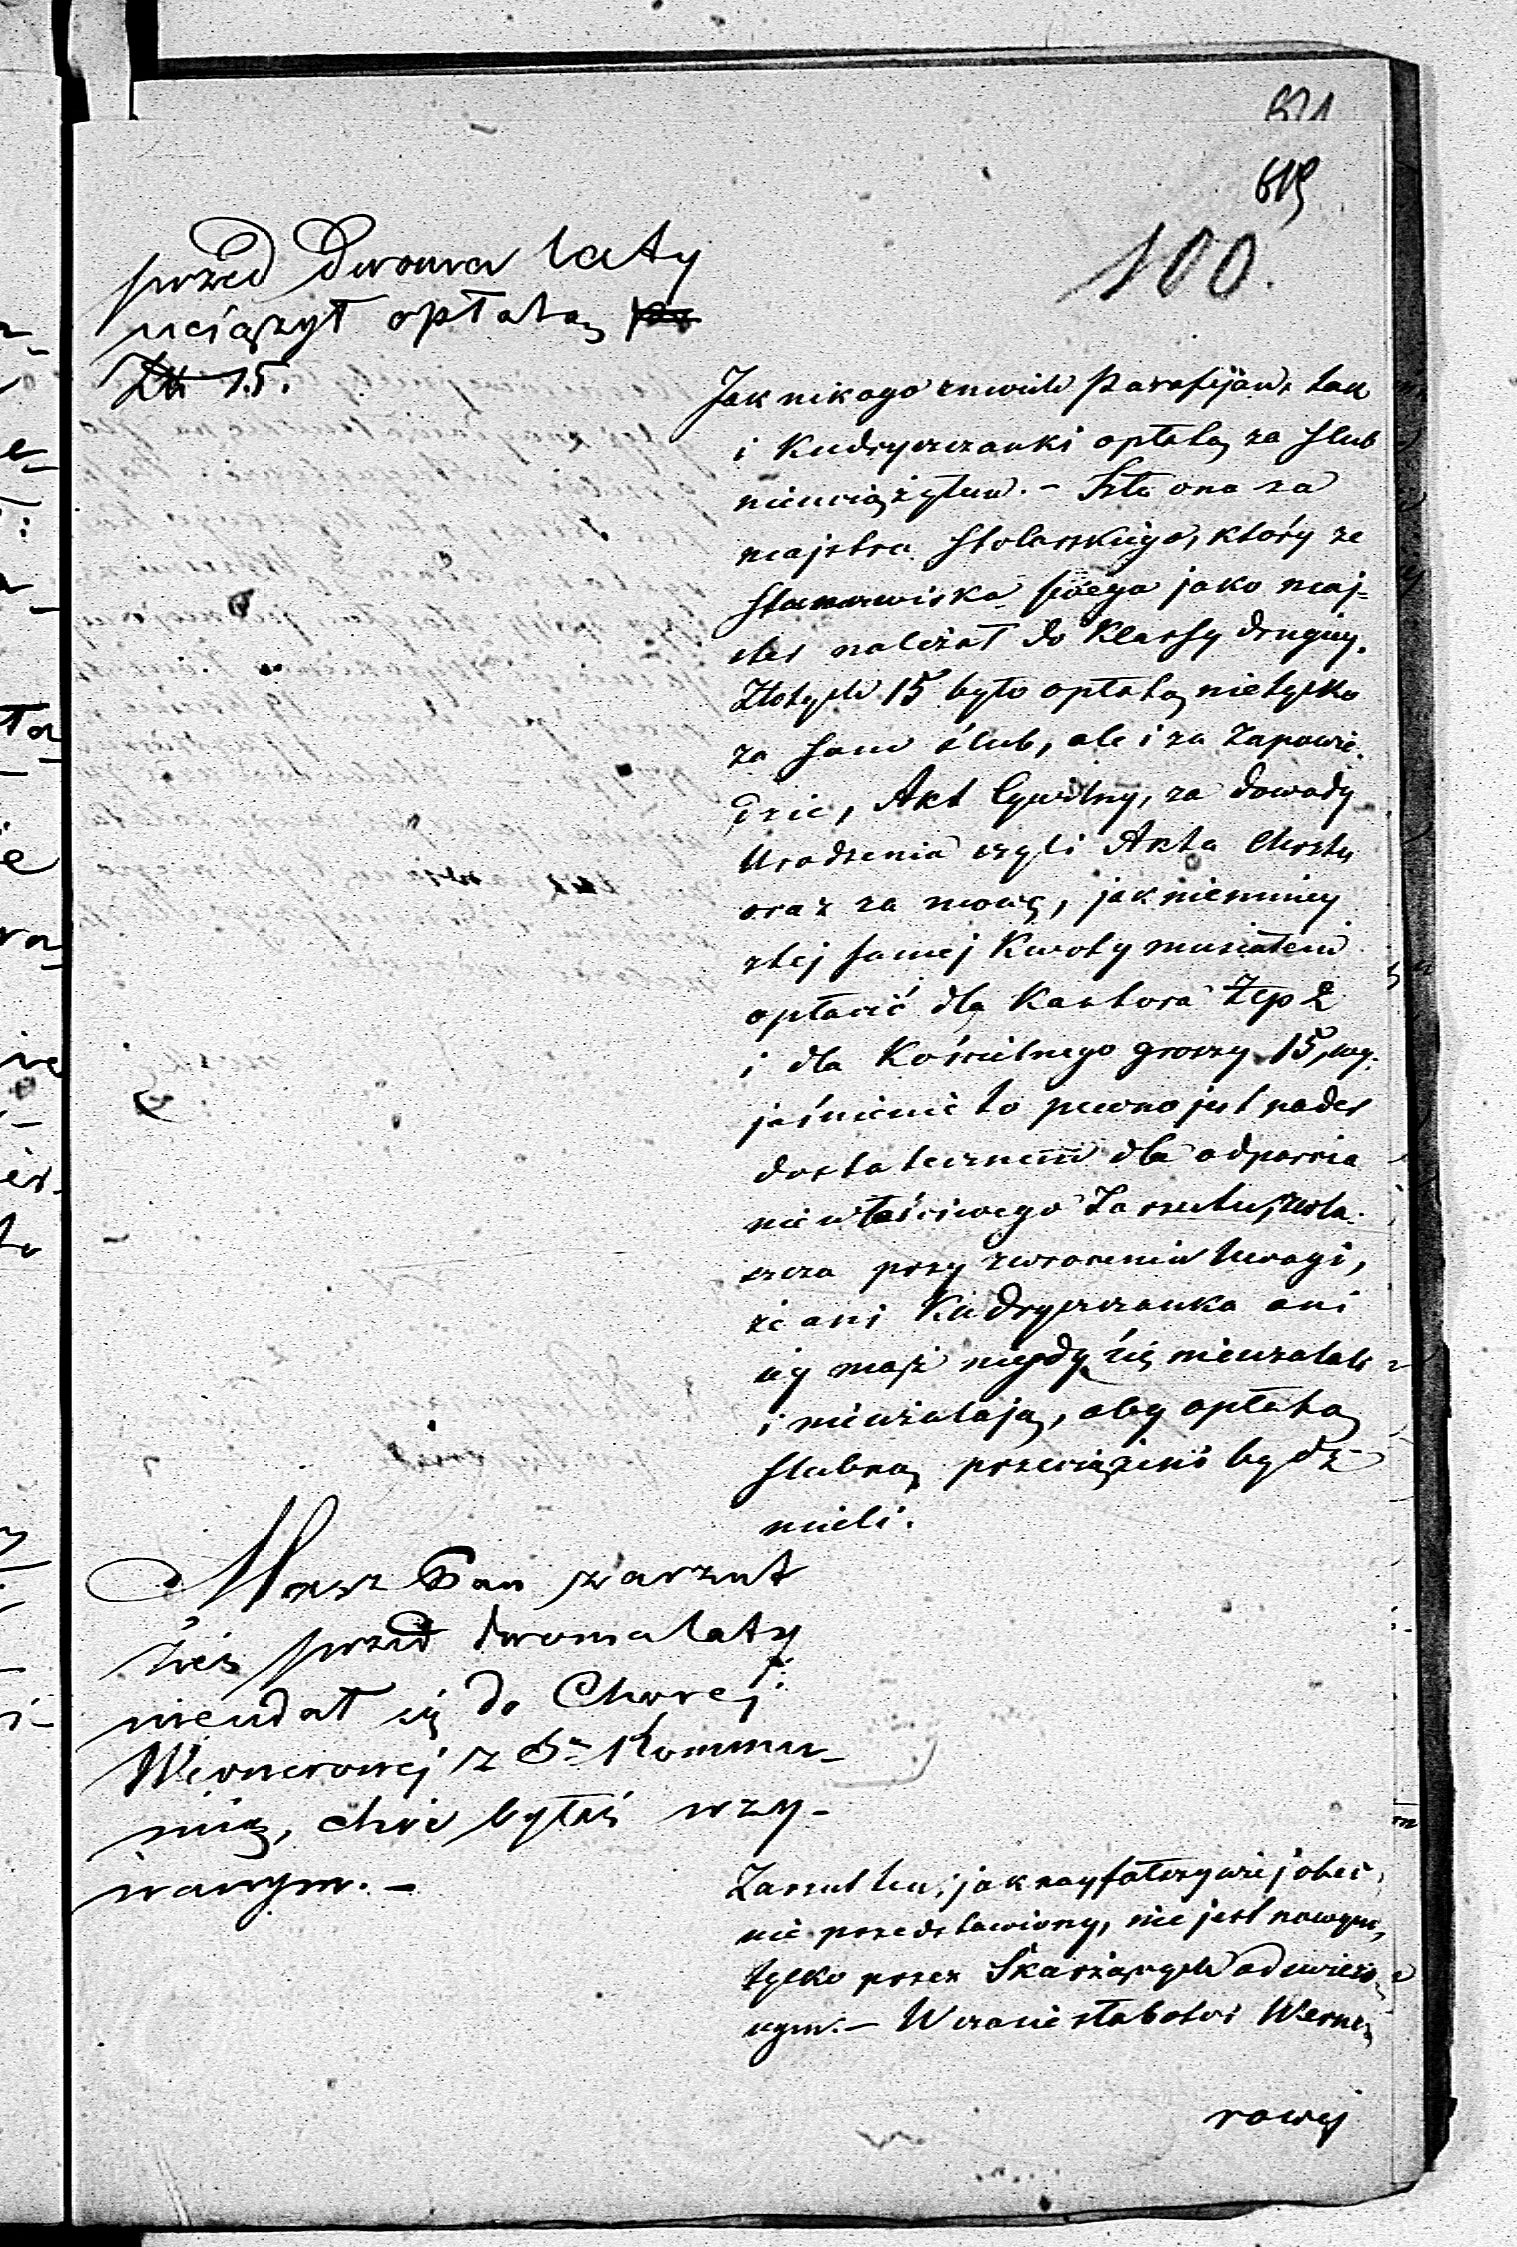 621
619
100.
przed Dwoma laty
uciążył opłatą
Zł 15.
Jak nikogo z moich Parafijan, tak
i Kudryczanki opłatą za ślub
nieuciążyłem. – Szła ona za
majstra Stolarskiego, który ze
Stanowiska swego jako maj-
ster należał do Klassy drugiey.
Złotych 15 było opłatą nietylko
za sam ślub, ale i za Zapowie-
dzie, Akt Cywilny, za dowody
Urodzenia czyli Akta Chrztu
oraz za mowę, jak niemniey
z tej samej Kwoty musiałem
opłacić dla Kantora Złp 2
i dla Kościelnego groszy 15, wy-
jaśnienie to pewno jest nader
dostatecznem dla odparcia
niewłaściwego Zarzutu, zwła-
szcza przy zwróceniu Uwagi,
że ani Kudryczanka ani
iey mąż nigdy się nieużalali
i nieużalają, aby opłatą
ślubną przeciążeni bydź
mieli.
Masz Pan zarzut
żeś przed dwoma laty
nieudał się do Chorej
Wernerowej z Śtą Kommu-
nią, choć byłeś wzy-
wanym. –
Zarzut ten, jak nayfałszywiej obec-
nie przedstawiony, nie jest nowym,
tylko przez Skarżących odświeżo-
nym. – W czasie słabości Werne-
rowej